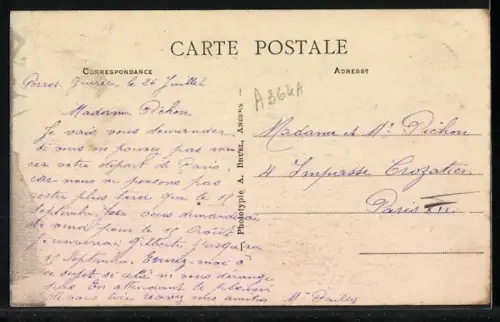 CARTE POSTALE
CORRESPONDANCE
ADRESSE
Perros Guirec, le 26 Juillet
Madame Pichon
Je vais vous demander
si vous ne pouvez pas
votre départ de Paris
car nous ne pensons pas
rester plus tard que le 15
Septembre, vous
de venir pour le 15 Août
Gilberte jusqu'au
15 Septembre. Ecrivez-moi à
ce sujet si cela ne vous dérange
pas En attendant le plaisir
de vous lire recevez mes amitiés
Phototypie A. BRUEL, ANGERS
A364A
Madame et Mr Pichon
4 Impasse Crozatier
Paris